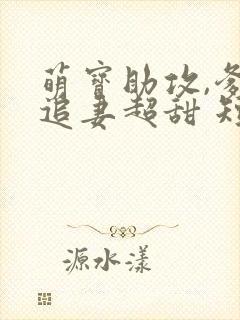 萌寶助攻,爹
追妻超甜 短
源水漾